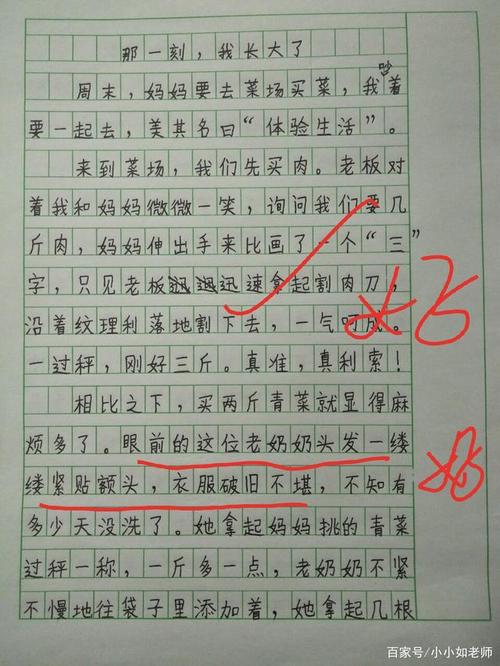 那一刻，我长大了
周末，妈妈要去菜场买菜，我吵着
要一起去，美其名曰“体验生活”。
来到菜场，我们先买肉。老板对
着我和妈妈微微一笑，询问我们要几
斤肉，妈妈伸出手来比画了一个“三”
字，只见老板迅速拿起割肉刀，
沿着纹理利落地割下去，一气呵成。
一过秤，刚好三斤。真准，真利索！
相比之下，买两斤青菜就显得麻
烦多了。眼前的这位老奶奶头发一缕
缕紧贴额头，衣服破旧不堪，不知有
多少天没洗了。她拿起妈妈挑的青菜
过秤一称，一斤多一点，老奶奶不紧
不慢地往袋子里添加着，她拿起几根
百家号/小小如老师